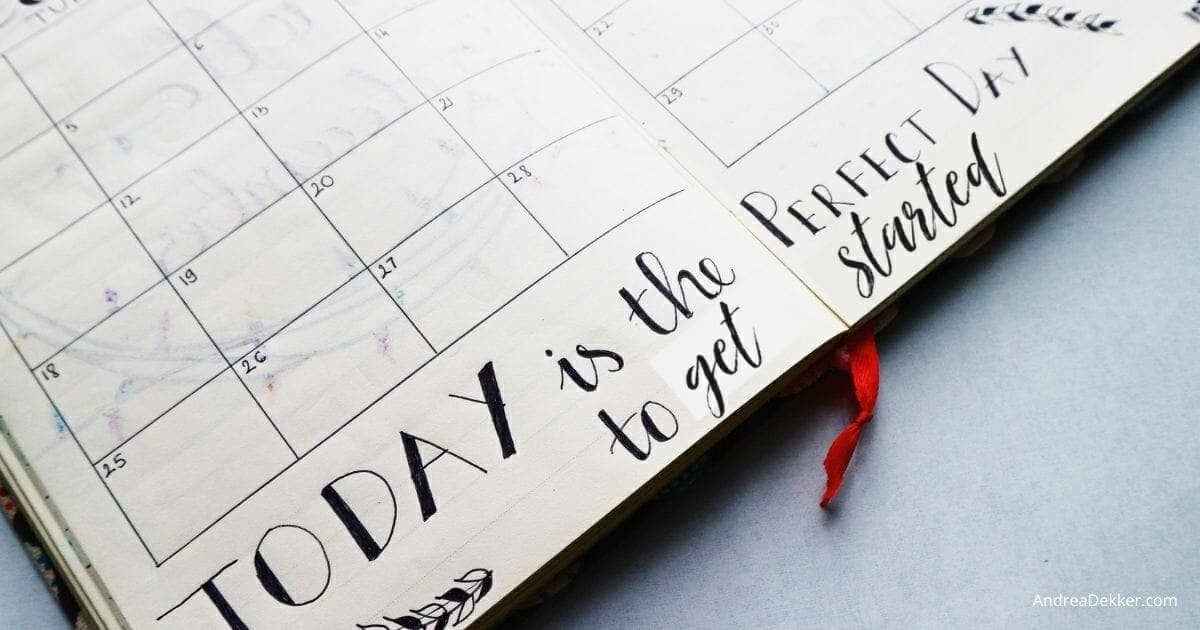 5 6
12 13 14
18 19 20 21 22
25 26 27 28 29 30
TODAY is the PERFECT DAY
to get started
AndreaDekker.com